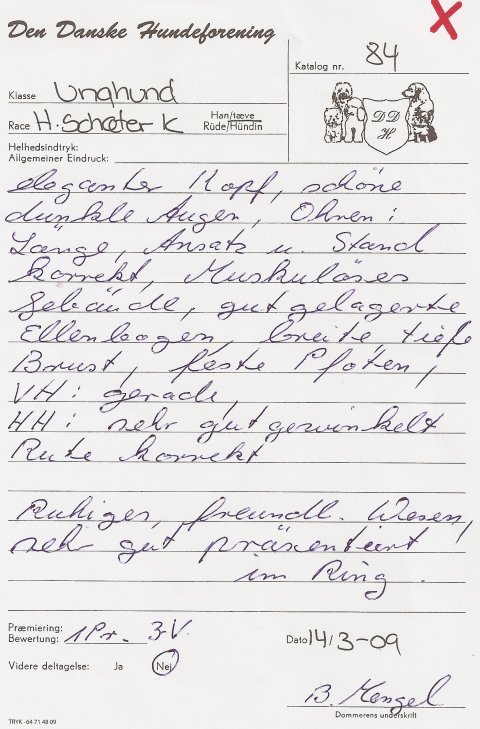 X
Den Danske Hundeforening
Katalog nr. 84
Klasse Unghund
Race H. Schæfer K Han/tæve
Rüde/Hündin
D D H
Helhedsindtryk:
Allgemeiner Eindruck:
eleganter Kopf, schöne
dunkle Augen, Ohren:
Länge, Ansatz u. Stand
korrekt, Muskulöses
Gebäude, gut gelagerte
Ellenbogen, breite, tiefe
Brust, feste Pfoten,
VH: gerade,
HH: sehr gut gewinkelt
Rute korrekt
Ruhiges, freundl. Wesen,
sehr gut präsentiert
im Ring.
Præmiering:
Bewertung: 1Pr. 3V Dato 14/3-09
Videre deltagelse: Ja Nej
B. Mengel
Dommerens underskrift
TRYK · 64 71 48 09